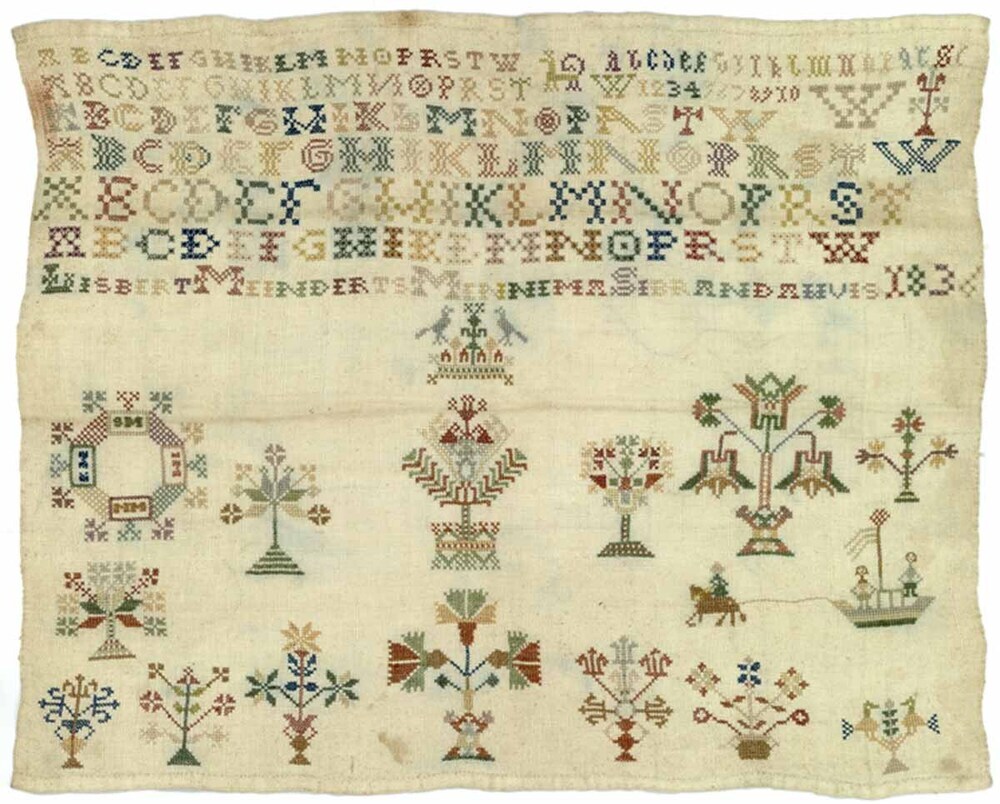 A B C D E F G H I K L M N O P R S T W A b c d e f g h i k l m n o p
A B C D E F G H I K L M N O P R S T W 1 2 3 4 10 W
A B C D E F G H I K L M N O P R S T W
A B C D E F G H I K L M N O P R S T W
A B C D E F G H I K L M N O P R S T
A B C D E F G H I K L M N O P R S T W
LISBERT MEINDERTS MENNEMA SIBRANDAHVIS 1836